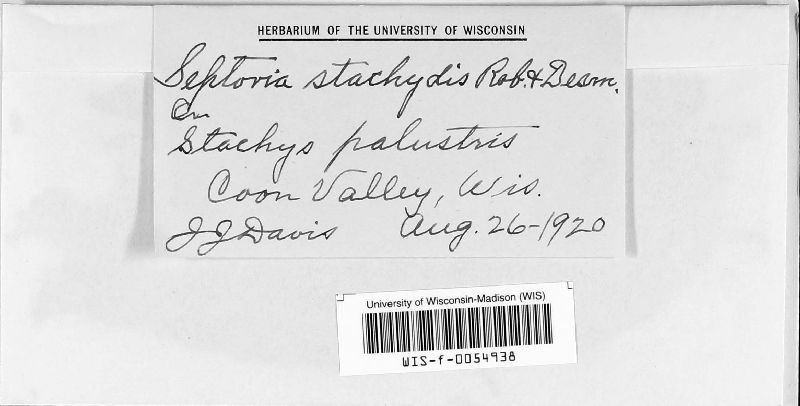 HERBARIUM OF THE UNIVERSITY OF WISCONSIN
Septoria stachydis Rob. & Desm.
On
Stachys palustris
Coon Valley, Wis.
J J Davis Aug. 26-1920
University of Wisconsin-Madison (WIS)
WIS-f-0054938